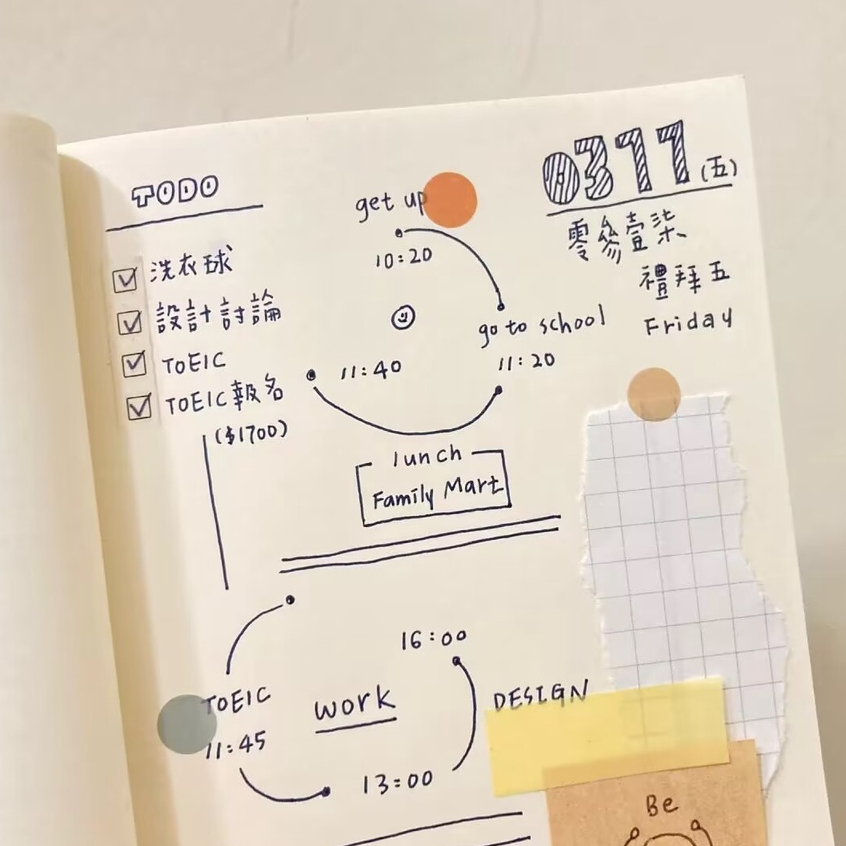 TODO
洗衣球
設計討論
TOEIC
TOEIC報名
($1700)
get up
10:20
go to school
11:20
11:40
lunch
Family Mart
0311(五)
零參壹柒
禮拜五
Friday
TOEIC
11:45
work
13:00
16:00
DESIGN
Be